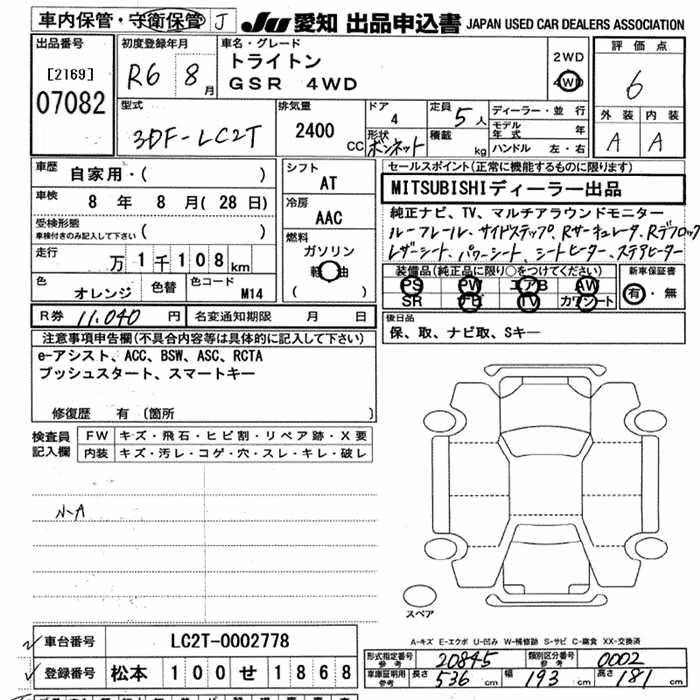 車内保管・守衛保管 J JU 愛知 出品申込書 JAPAN USED CAR DEALERS ASSOCIATION
出品番号 初度登録年月 車名・グレード 評価点
[2169] R6 8月 トライトン 2WD
07082 GSR 4WD 4WD 6
型式 排気量 ドア 定員 ディーラー・並行 外装 内装
3DF-LC2T 2400CC 4 5人 モデル年式 年 A A
形状 ボンネット 積載 kg ハンドル 左・右
車歴 自家用・( ) シフト AT セールスポイント(正常に機能するものに限ります)
車検 8年8月(28日) 冷房 AAC MITSUBISHIディーラー出品
受検形態 車検付きのみ記入して下さい ( ) 純正ナビ、TV、マルチアラウンドモニター
燃料 ガソリン 軽油 ( ) ルーフレール、サイドステップ、Rサーキュレータ、Rデフロック
走行 万1千108km レザーシート、パワーシート、シートヒーター、ステアヒーター
色 オレンジ 色替 色コード M14 装備品(純正品に限り○をつけてください) 新車保証書
PS PW エアB AW 有・無
SR ナビ TV カワシート
R券 11,040円 名変通知期限 月 日 後日品
注意事項申告欄(不具合内容等は具体的に記入して下さい) 保、取、ナビ取、Sキー
e-アシスト、ACC、BSW、ASC、RCTA
プッシュスタート、スマートキー
修復歴 有(箇所 )
検査員記入欄 FW キズ・飛石・ヒビ割・リペア跡・X要
内装 キズ・汚レ・コゲ・穴・スレ・キレ・破レ
N-A
スペア
A-キズ E-エクボ U-凹み W-補修跡 S-サビ C-腐食 XX-交換済
車台番号 LC2T-0002778
形式指定番号 参考 20845 類別区分番号 参考 0002
登録番号 松本 100 せ 1868
車庫証明用 参考 長さ 536cm 幅 193cm 高さ 181cm